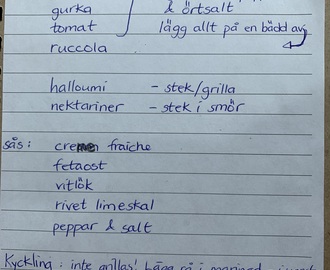 gurka & örtsalt
tomat lägg allt på en bädd av
ruccola
halloumi - stek/grilla
nektariner - stek i smör
sås: creme fraiche
fetaost
vitlök
rivet limeskal
peppar & salt
Kyckling : inte grillas! Lägg på i